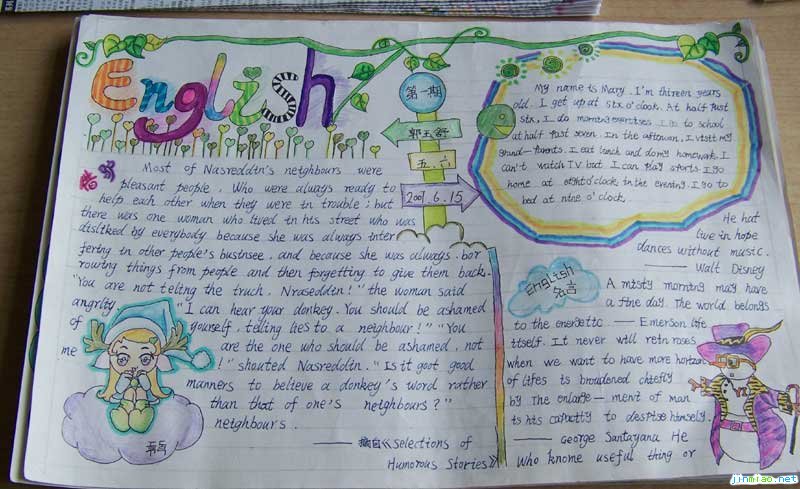 English
第一期
郭玉舒
五.六
2009.6.15
My name is Mary. I'm thireen years
old. I get up at six o'clock. At half past
six, I do morning exercises. I go to school
at half past seven. In the aftowen, I visit my
grand-parents. I eat lunch and do my homework. I
can't watch TV but I can play sports. I go
home at eight o'clock in the evening. I go to
bed at nine o'clock.
Most of Nasreddin's neighbours were
pleasant people. Who were always ready to
help each other when they were in trouble; but
there was one woman who lived in his street who was
disliked by everybody because she was always inter
fering in other people's business, and because she was always bor
rowing things from people and then forgetting to give them back.
"You are not telling the truch, Nraseddin!" the woman said
angrlity "I can hear your donkey. You should be ashamed
of yourself, telling lies to a neighbour!" "You
are the one who should be ashamed, not
me !" shouted Nasreddin. "Is it goot good
manners to believe a donkey's word rather
than that of one's neighbours?"
neighbours.
——摘自《Selections of
Humorous Stories》
He hat
live in hope
dances without music.
—— Walt Disney
English
名言
A misty morning may have
a fine day. The world belongs
to the energetic —— Emerson life
itself. It never will retn roses
when we want to have more horizon
of lifes is broadened chiefly
by the enlarge — ment of man
is his capacity to despise himsely.
—— George Santayanu He
who knome useful thing or
jinmiao.net